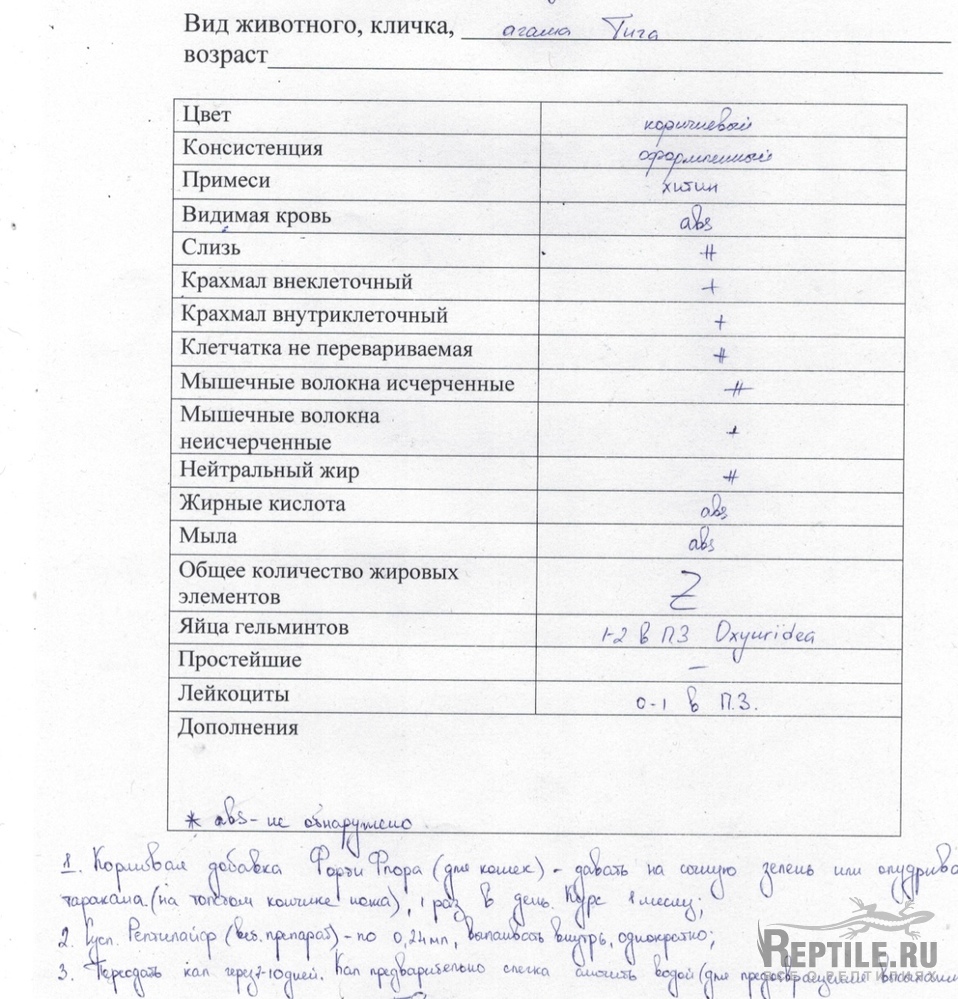 Вид животного, кличка, агама Тига
возраст
Цвет коричневый
Консистенция оформленный
Примеси хитин
Видимая кровь abs
Слизь ++
Крахмал внеклеточный +
Крахмал внутриклеточный +
Клетчатка не перевариваемая ++
Мышечные волокна исчерченные ++
Мышечные волокна
неисчерченные +
Нейтральный жир ++
Жирные кислота abs
Мыла abs
Общее количество жировых
элементов
Яйца гельминтов 1-2 в П.З Oxyuridea
Простейшие –
Лейкоциты 0-1 в П.З.
Дополнения
* abs - не обнаружено
1. Кормовая добавка Форти Флора (для кошек) - давать на сочную зелень или опудрива
таракана (на толстом кончике ножа), 1 раз в день. Курс 1 месяц;
2. Сусп. Рептилайф (вет. препарат) - по 0,24 мл, выпаивать внутрь, однократно;
REPTILE.RU
ВСЕ О РЕПТИЛИЯХ
3. Пересдать кал через 7-10 дней. Кал предварительно слегка смочить водой (для предотвращения высыхани